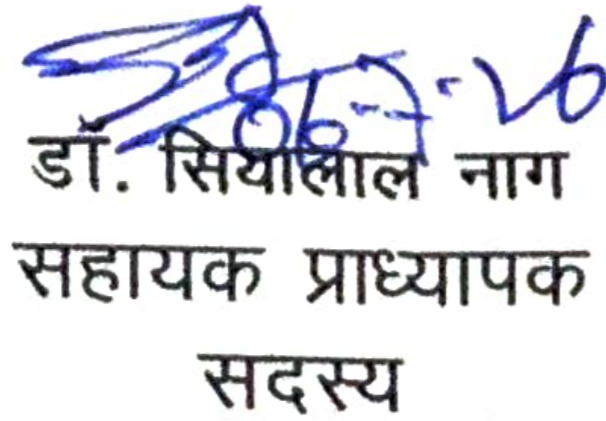 06-7-26
डॉ. सियालाल नाग
सहायक प्राध्यापक
सदस्य